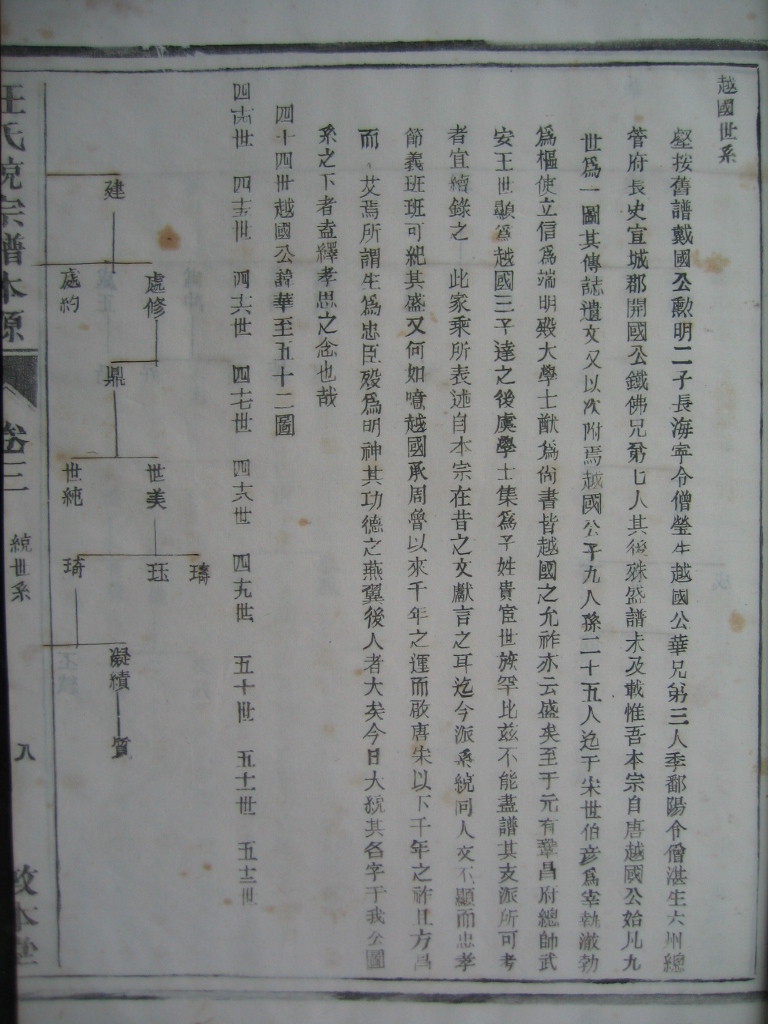 越國世系
壑按舊譜戴國公勲明二子長海寧令僧瑩生越國公華兄第三人季鄱陽令僧湛生六州總
管府長史宜城郡開國公鐵佛兄第七人其後殊盛譜未及載惟吾本宗自唐越國公始凡九
世爲一圖其傳誌遺文又以次附焉越國公子九人孫二十五人迄于宋世伯彦爲宰執澈勃
爲樞使立信爲端明殿大學士猷爲尚書皆越國之允祚亦云盛矣至于元有鞏昌府總帥武
安王世顯爲越國三子達之後虞學士集爲子姓貴宦世族罕比兹不能盡譜其支派所可考
者宜續錄之 此家乘所表述自本宗在昔之文獻言之耳迄今派系統同人文丕顯而忠孝
節義班班可紀其盛又何如噫越國承周魯以來千年之運而啟唐宋以下千年之祚且方昌
而 艾焉所謂生爲忠臣殁爲明神其功德之燕翼後人者大矣今日大統其名字于我公圖
系之下者盍繹孝思之念也哉
四十四世越國公諱華至五十二圖
四十四世 四十五世 四十六世 四十七世 四十八世 四十九世 五十世 五十一世 五十二世
建
處修
處約
鼎
世美
世純
璹
珏
琦
凝績
質
汪氏統宗譜本源
卷三
統世系
八
敦本堂